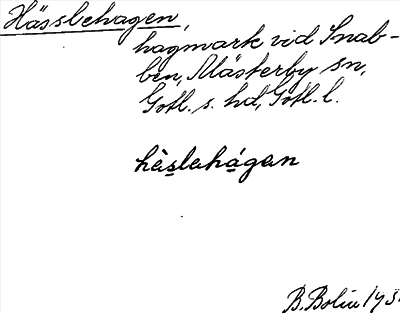 Hässlehagen,
hagmark vid Snab-
ben, Mästerby sn,
Gotl. s. hd, Gotl. l.
hèslahágan
B. Bolin 193